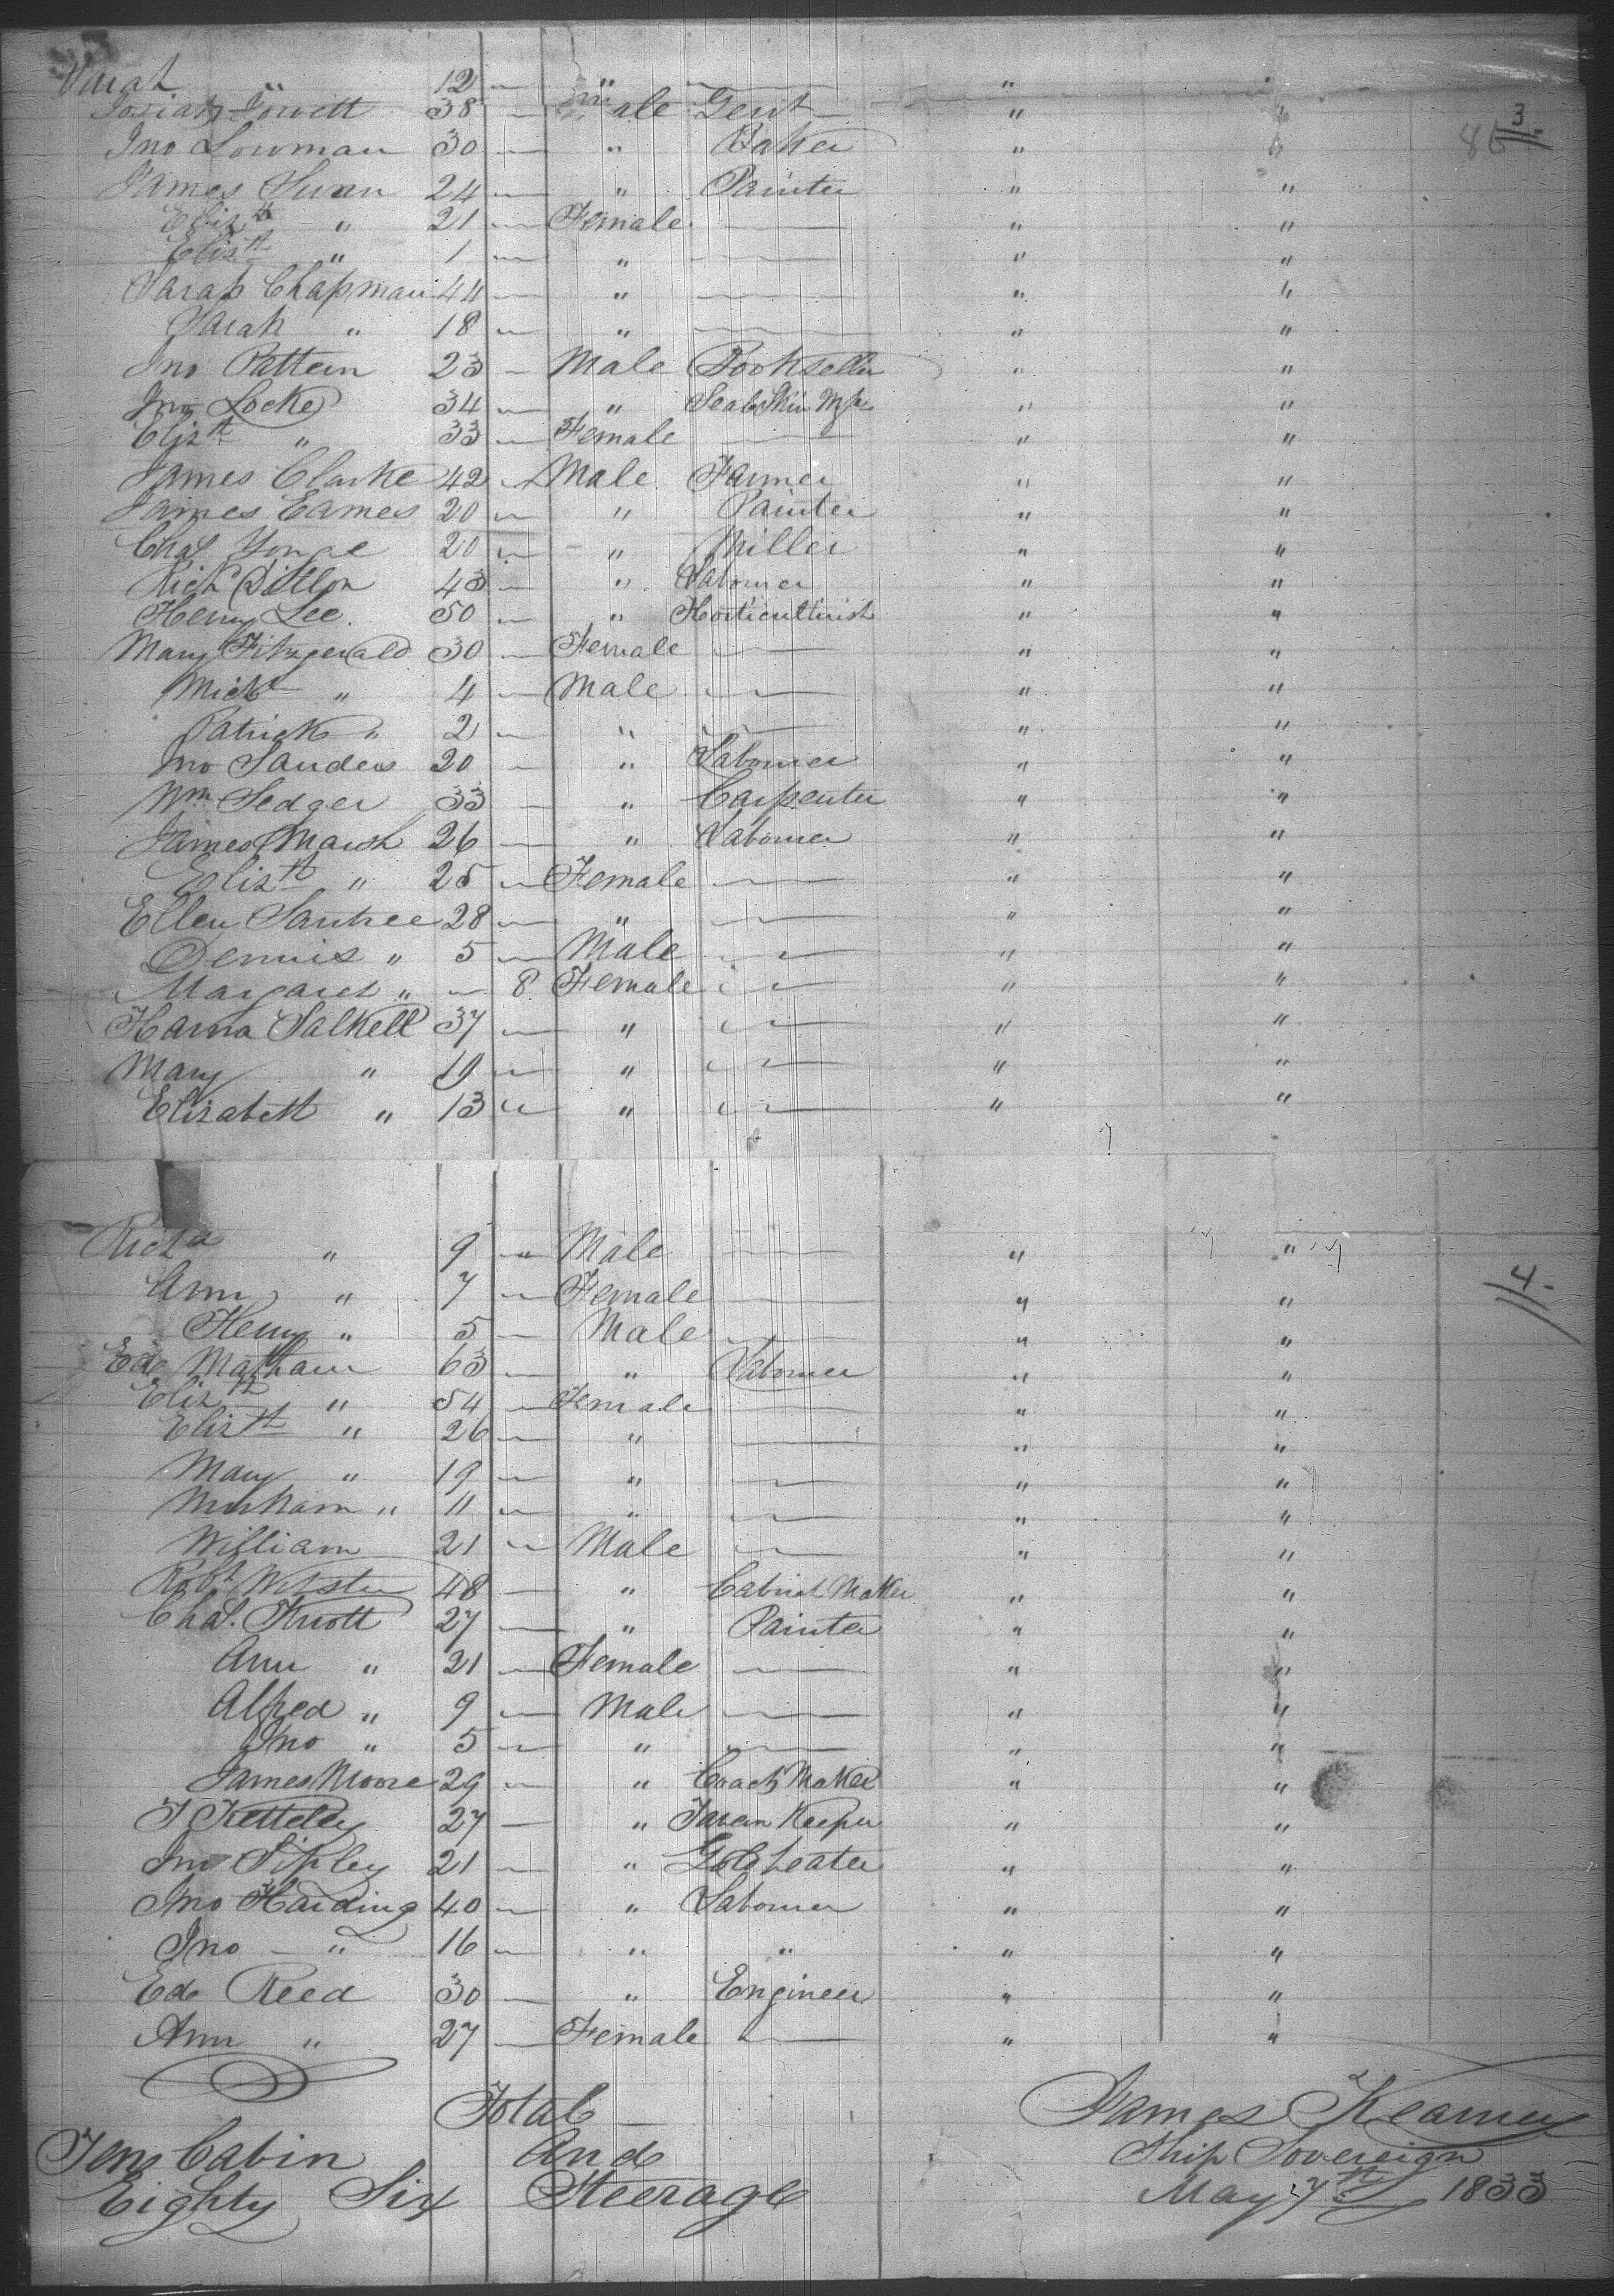 Sarah " 12 — " — " "
Josiah Jowett 38 — Male Gent — " "
86 3
Jno Lowman 30 — " Baker " "
James Swan 24 — " Painter " "
Elizth " 21 — Female — " "
Elizth " 1 — " — " "
Sarah Chapman 44 — " — " "
Sarah " 18 — " — " "
Jno Pattern 23 — Male Bookseller " "
Jno Locke 34 — " Seal Skin Mfr " "
Elizth " 33 — Female — " "
James Clarke 42 — Male Farmer " "
James Eames 20 — " Painter " "
Chas Yonge 20 — " Miller " "
Richd Dillon 43 — " Labourer " "
Henry Lee. 50 — " Horticulturist " "
Mary Fitzgerald 30 — Female — " "
Michl " 4 — Male — " "
Patrick " 2 — " — " "
Jno Sanders 20 — " Labourer " "
Wm Sedger 33 — " Carpenter " "
James Marsh 26 — " Labourer " "
Elizth " 25 — Female — " "
Ellen Santree 28 — " — " "
Dennis " 5 — Male — " "
Margaret " — 8 Female — " "
Hanna Salkell 37 — " — " "
Mary " 19 — " — " "
Elizabeth " 13 — " — " "
Richd " 9 — Male — " "
4
Ann " 7 — Female — " "
Henry " 5 — Male — " "
Ed Matham 63 — " Labourer " "
Elizth " 54 — Female — " "
Elizth " 26 — " — " "
Mary " 19 — " — " "
" 11 — " — " "
William 21 — Male — " "
Robt Webster 48 — " Cabinet Maker " "
Chas. Knott 27 — " Painter " "
Ann " 21 — Female — " "
Alfred " 9 — Male — " "
Jno " 5 — " — " "
James Moore 29 — " Coach Maker " "
T Ketteley 27 — " Tavern Keeper " "
Jno Sipley 21 — " Goldbeater " "
Jno Harding 40 — " Labourer " "
Jno — " 16 — " " " "
Ed Reed 30 — " Engineer " "
Ann " 27 — Female — " "
Total —
James Kearney
Ten Cabin And
Ship Sovereign
Eighty Six Steerage
May 27th 1833